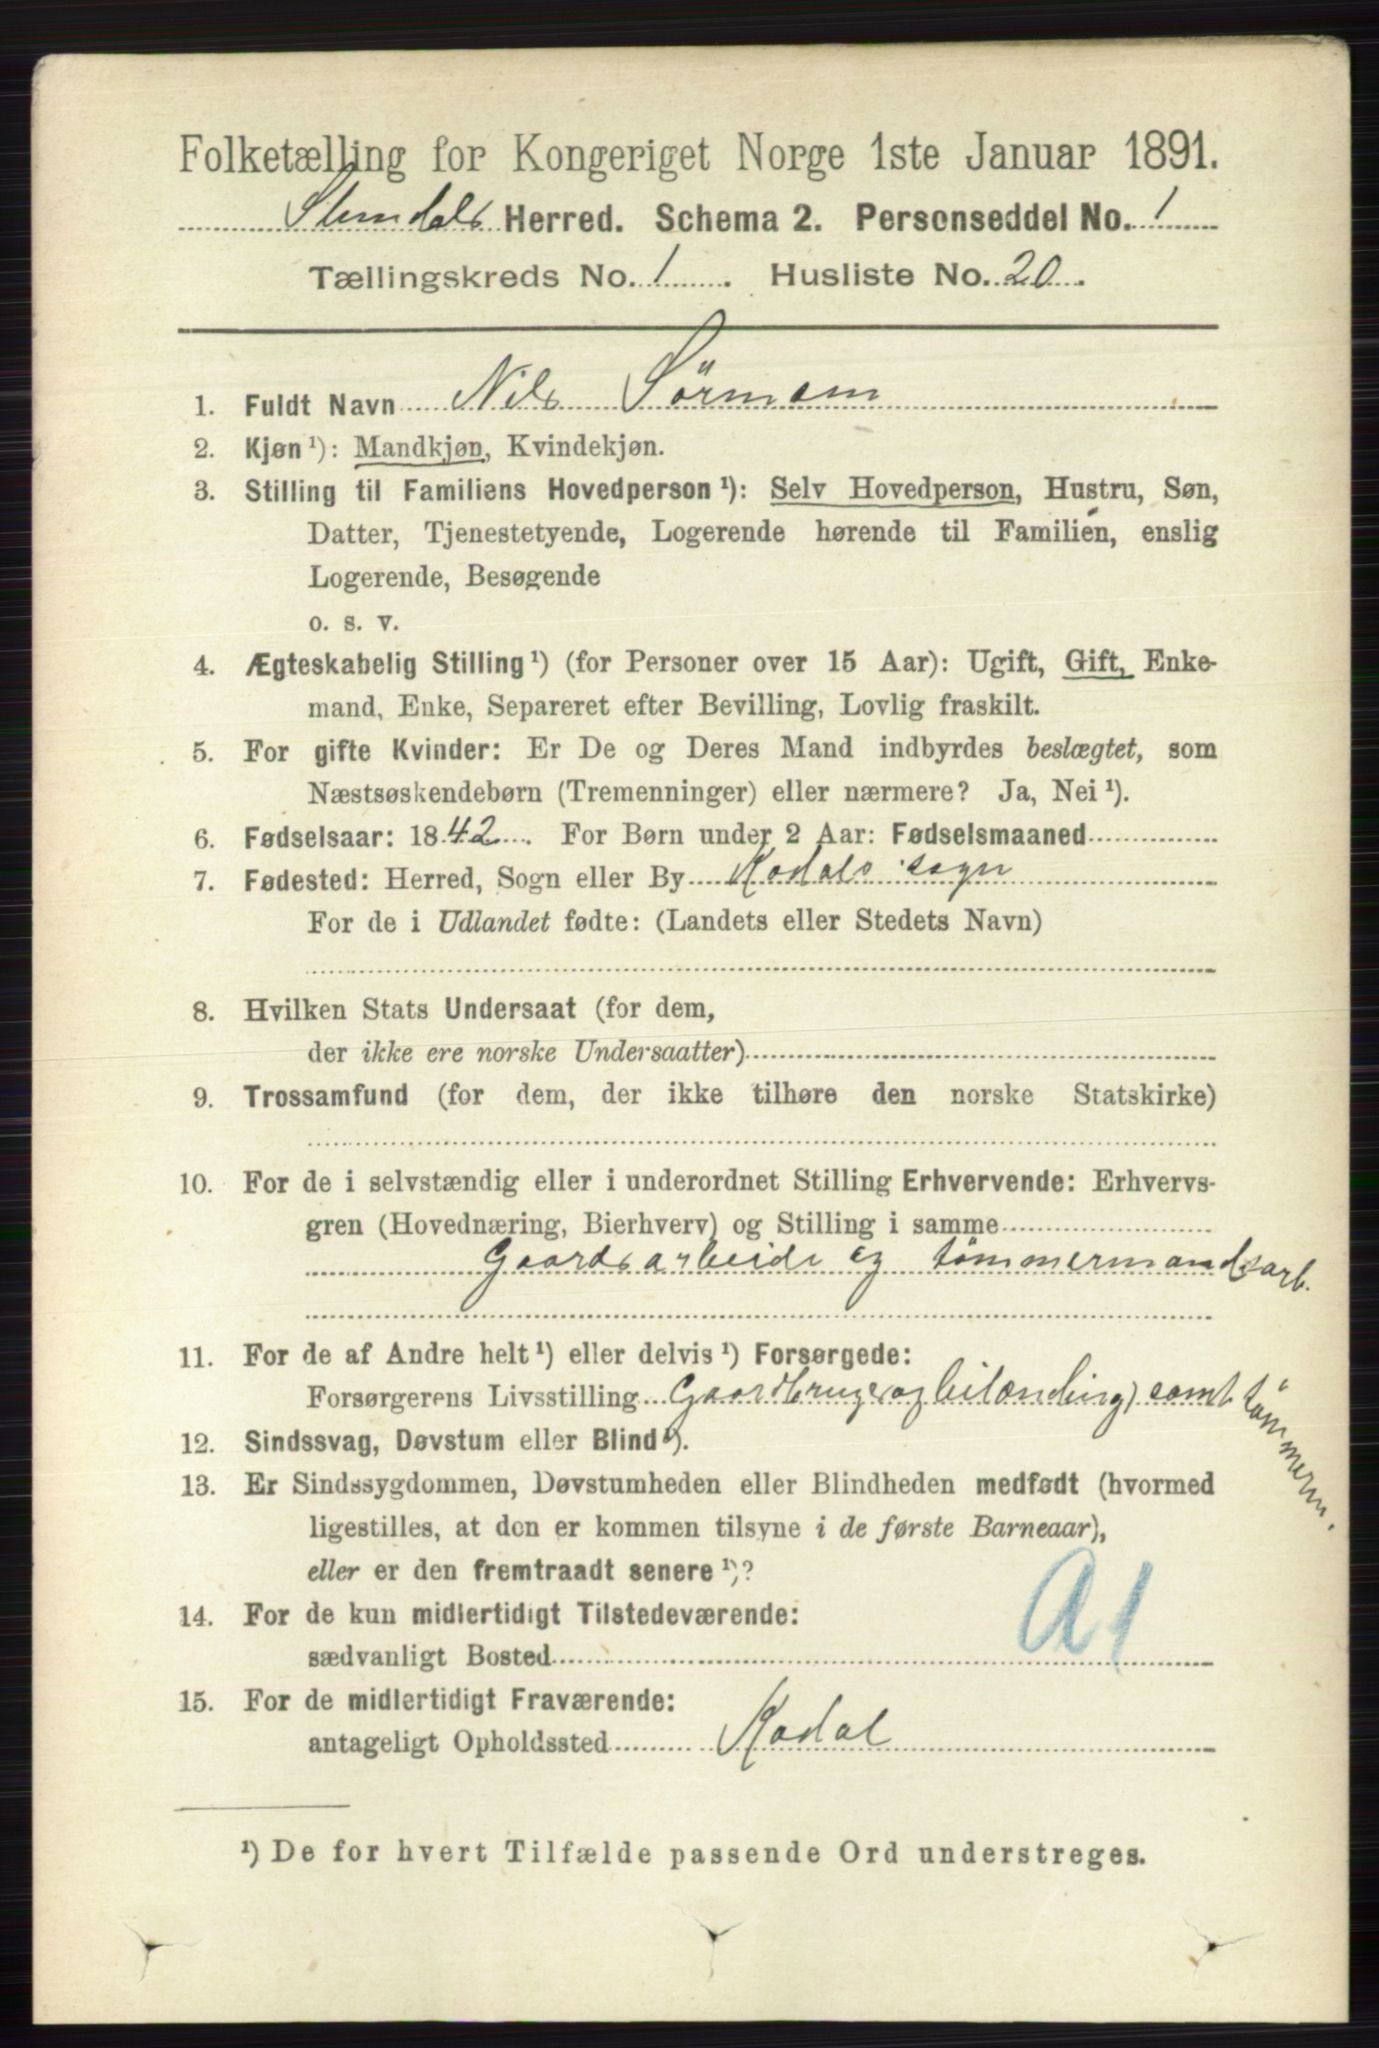 Folketælling for Kongeriget Norge 1ste Januar 1891.
Herred. Schema 2. Personseddel No. 1
Tællingskreds No. 1. Husliste No. 20.
1. Fuldt Navn Nils Sörmom
2. Kjøn¹): Mandkjøn, Kvindekjøn.
3. Stilling til Familiens Hovedperson¹): Selv Hovedperson, Hustru, Søn,
Datter, Tjenestetyende, Logerende hørende til Familien, enslig
Logerende, Besøgende
o. s. v.
4. Ægteskabelig Stilling¹) (for Personer over 15 Aar): Ugift, Gift, Enke-
mand, Enke, Separeret efter Bevilling, Lovlig fraskilt.
5. For gifte Kvinder: Er De og Deres Mand indbyrdes beslægtet, som
Næstsøskendebørn (Tremenninger) eller nærmere? Ja, Nei¹).
6. Fødselsaar: 1842. For Børn under 2 Aar: Fødselsmaaned
7. Fødested: Herred, Sogn eller By Kodals sogn
For de i Udlandet fødte: (Landets eller Stedets Navn)
8. Hvilken Stats Undersaat (for dem,
der ikke ere norske Undersaatter)
9. Trossamfund (for dem, der ikke tilhøre den norske Statskirke)
10. For de i selvstændig eller i underordnet Stilling Erhvervende: Erhvervs-
gren (Hovednæring, Bierhverv) og Stilling i samme
Gaardsarbeide og tömmermandsarb.
11. For de af Andre helt¹) eller delvis¹) Forsørgede:
Forsørgerens Livsstilling samt tömmerm.
12. Sindssvag, Døvstum eller Blind¹).
13. Er Sindssygdommen, Døvstumheden eller Blindheden medfødt (hvormed
ligestilles, at den er kommen tilsyne i de første Barneaar),
eller er den fremtraadt senere¹)?
14. For de kun midlertidigt Tilstedeværende:
sædvanligt Bosted
A1
15. For de midlertidigt Fraværende:
antageligt Opholdssted Kodal
¹) De for hvert Tilfælde passende Ord understreges.